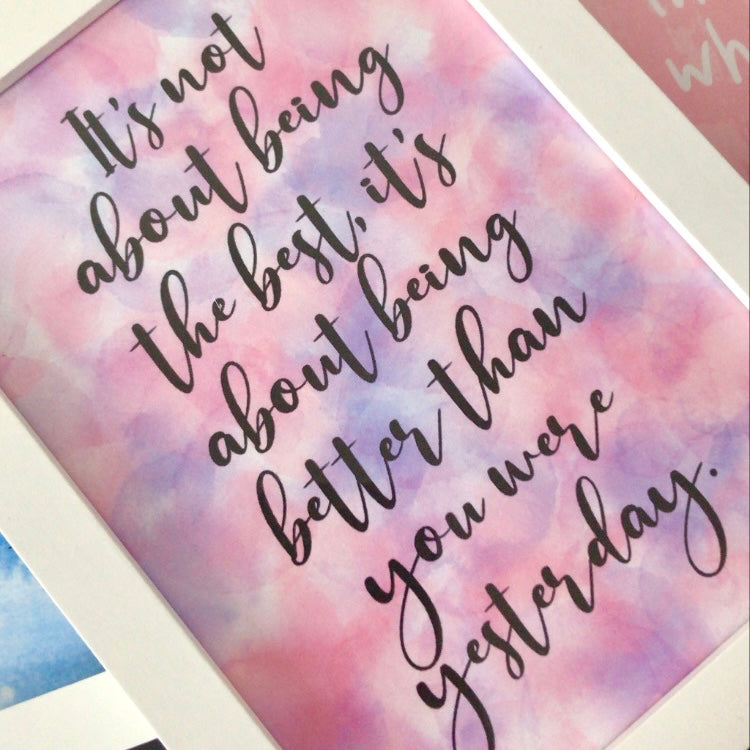 It's not
about being
the best, it's
about being
better than
you were
yesterday.
wh